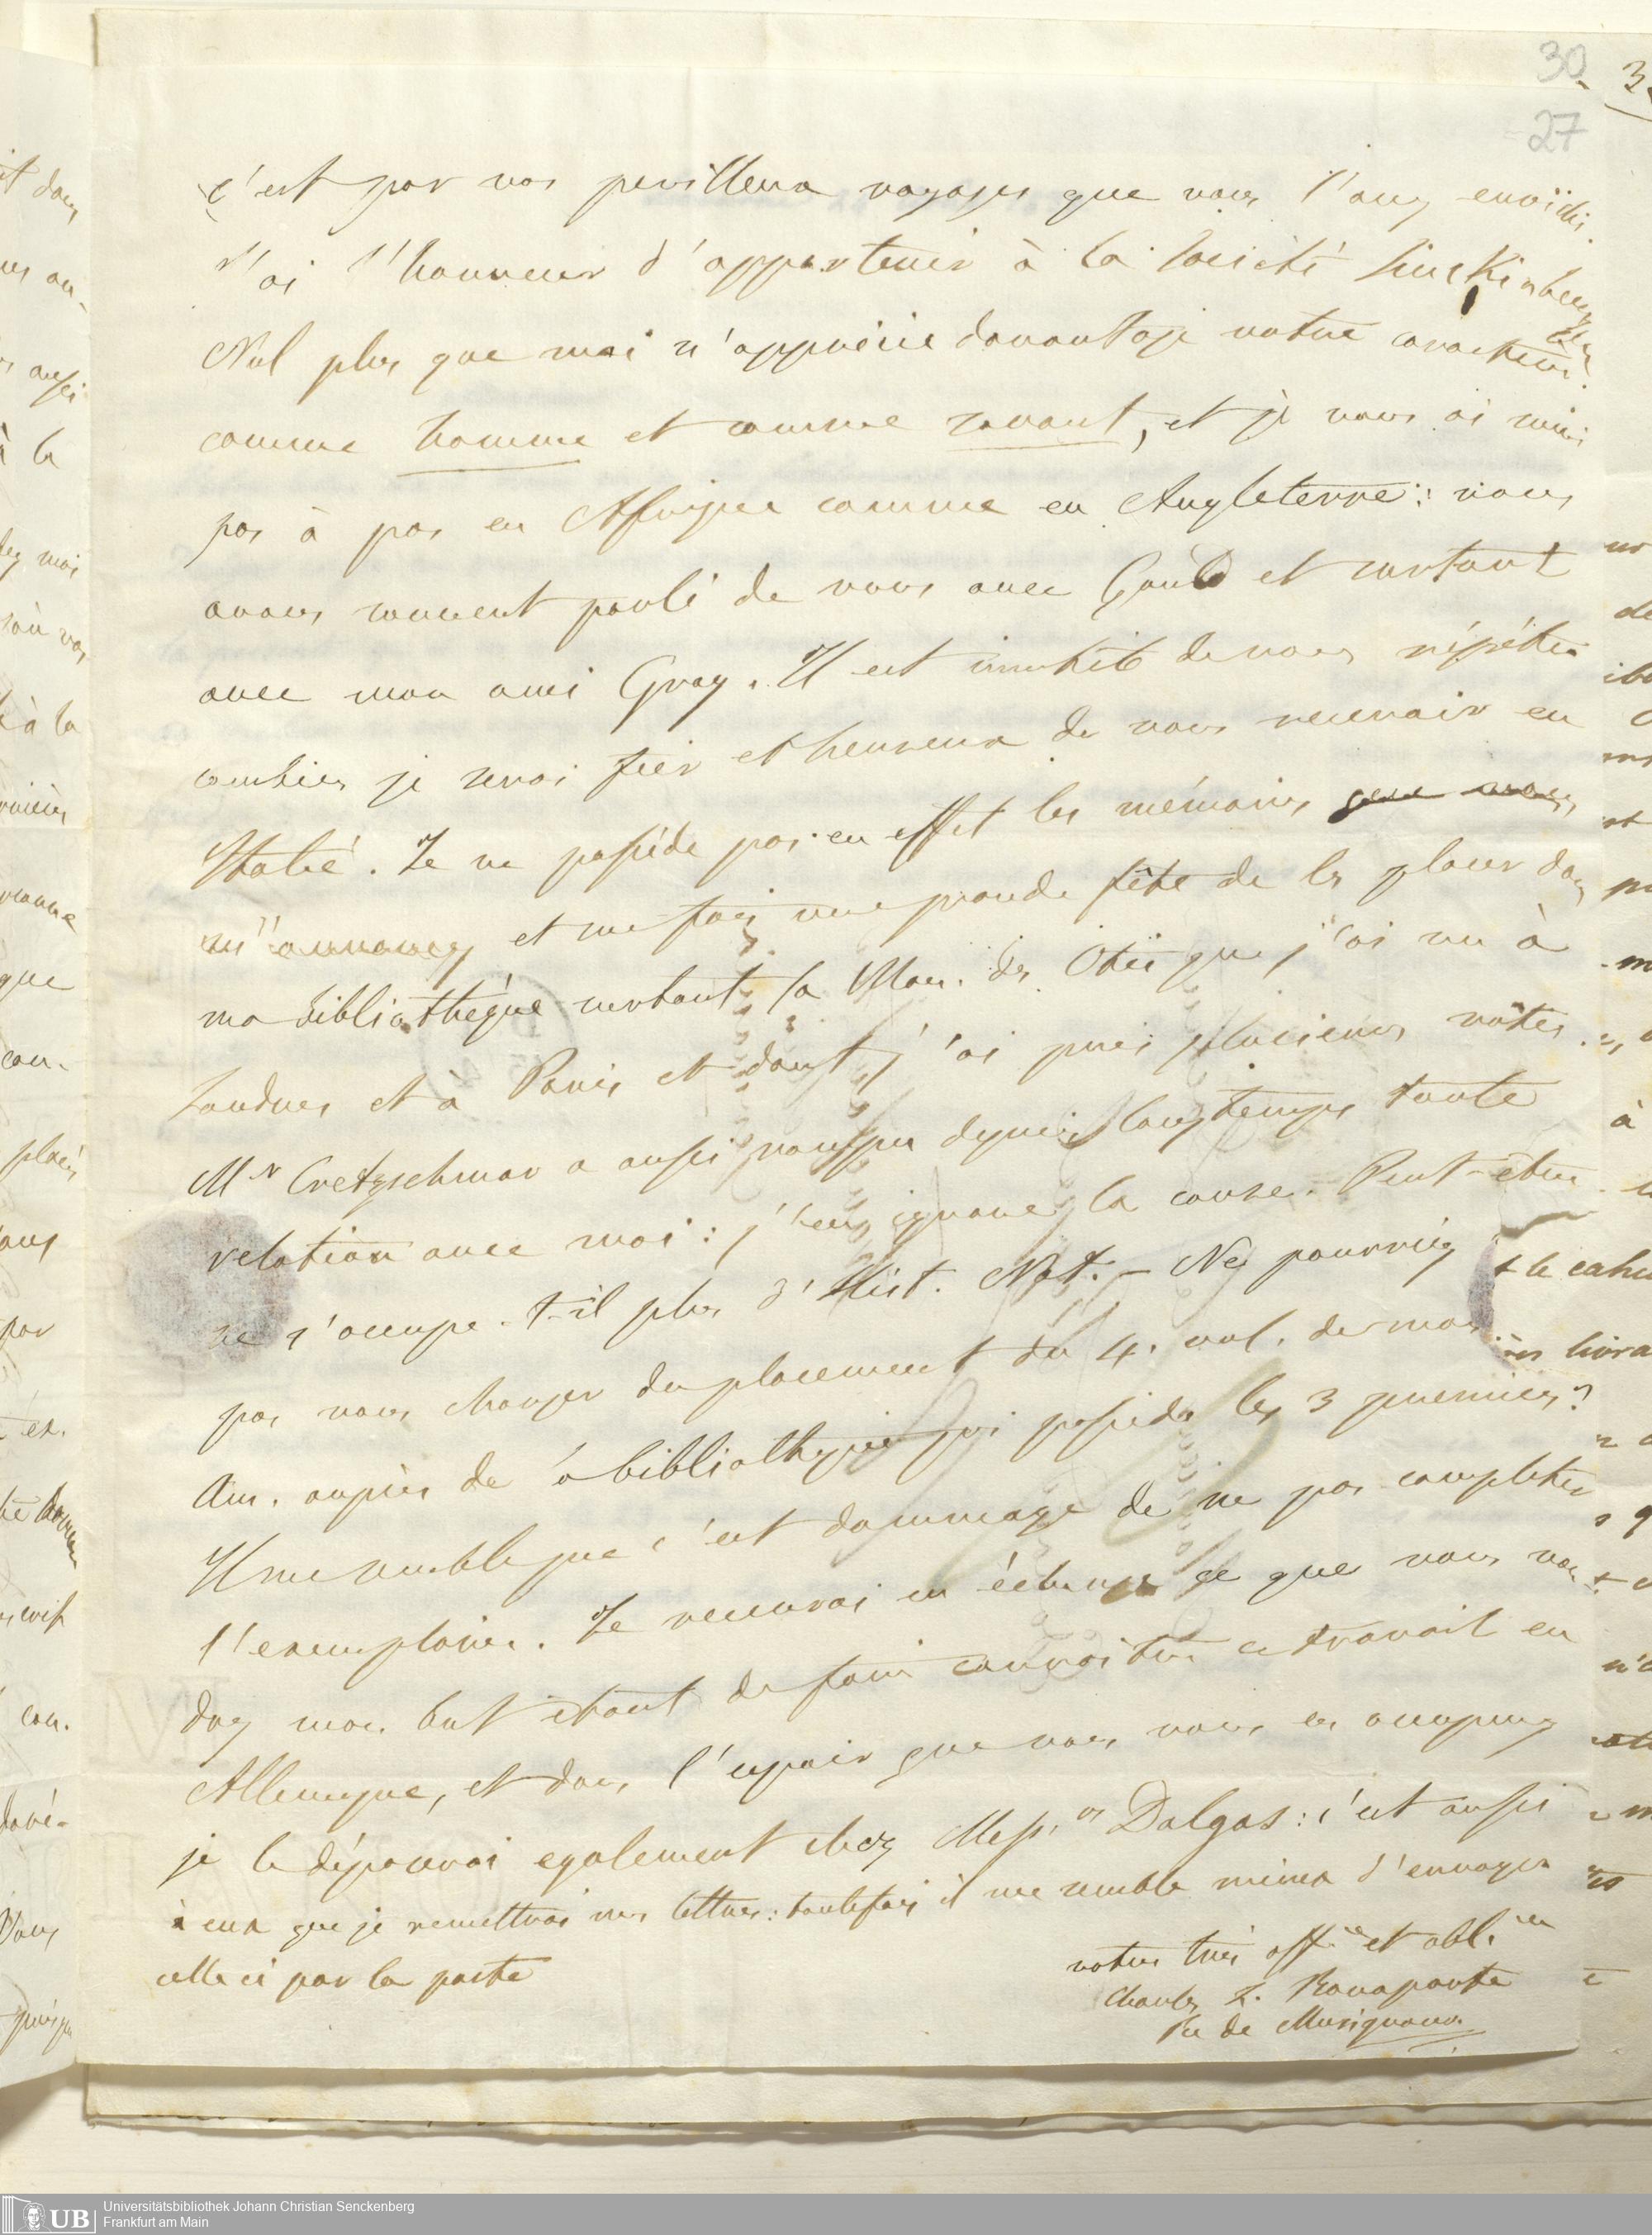 30
27
c'est par vos perilleux voyages que vous l'avez enrichi.
J'ai l'honneur d'appartenir à la Société Senckenberg
Nul plus que moi n'apprécie davantage votre caractere
comme homme et comme savant, et je vous ai suivi
pas à pas en Afrique comme en Angleterre: nous
avons souvent parlé de vous avec Gould et surtout
avec mon ami Gray. Il est inutile de vous répéter
combien je serai fier et heureux de vous recevoir en
Italie. Je ne posséde pas en effet les mémoires que vous
m'annoncez et me fais une grande fête de les placer dans
ma bibliothèque surtout la Mon. des Otis que j'ai vu à
Londres et à Paris et dont j'ai pris plusieurs nôtes.
Mr Cretzschmar a aussi rompu depuis longtemps toute
relation avec moi: j'en ignore la cause. Peut-être
ne s'occupe-t-il plus d'Hist. Nat. – Ne pourriez
pas vous charger du placement du 4. vol. de mon
Am. auprès de la bibliothèque qui posséde les 3 premiers?
Il me semble que c'est dommage de ne pas completer
l'exemplaire. Je recevrai en échange ce que vous vou-
drez mon but étant de faire connaitre ce travail en
Allemagne, et dans l'espoir que vous vous en occuperez
je le déposerai egalement chez Mess.rs Dalgas: c'est aussi
à eux que je remettrai mes lettres: toutefois il me semble mieux d'envoyer
celle ci par la poste
votre très aff. et obl.
Charles L. Bonaparte
Pce de Musignano
Universitätsbibliothek Johann Christian Senckenberg
Frankfurt am Main
UB